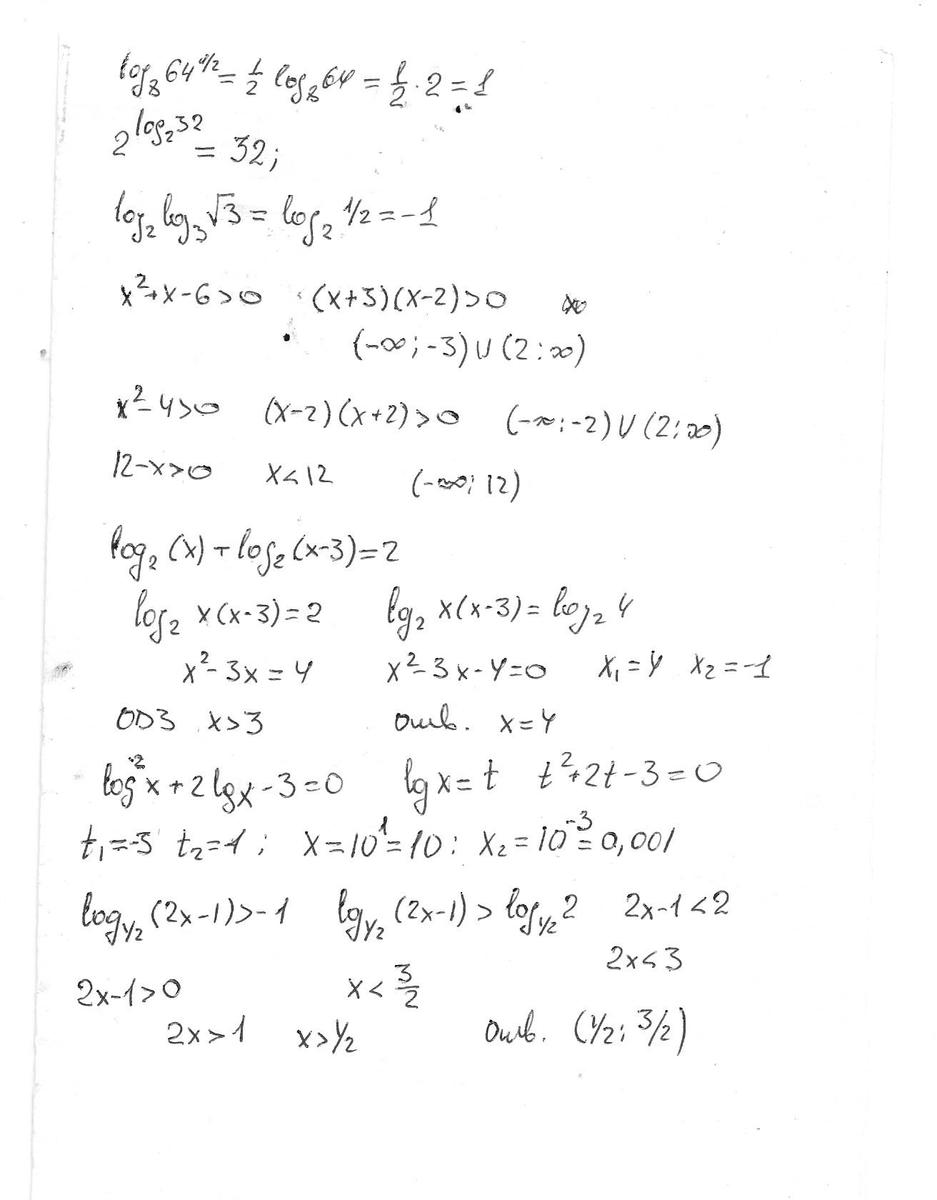 log₈64^1/2 = 1/2 log₈64 = 1/2 · 2 = 1
2^log₂32 = 32;
log₂log₃√3 = log₂ 1/2 = -1
x²+x-6>0 (x+3)(x-2)>0
(-∞; -3) ∪ (2; ∞)
x²-4>0 (x-2)(x+2)>0 (-∞; -2) ∪ (2; ∞)
12-x>0 x<12 (-∞; 12)
log₂(x) + log₂(x-3)=2
log₂ x(x-3)=2 lg₂ x(x-3)= log₂ 4
x²-3x=4 x²-3x-4=0 x₁=4 x₂=-1
ОДЗ x>3 Отв. x=4
log²x+2lgx-3=0 lgx=t t²+2t-3=0
t₁=-3 t₂=1; x=10¹=10; x₂=10⁻³=0,001
log_1/2(2x-1)>-1 lg_1/2(2x-1)>log_1/2 2 2x-1<2
2x<3
2x-1>0 x<3/2
2x>1 x>1/2 Отв. (1/2; 3/2)